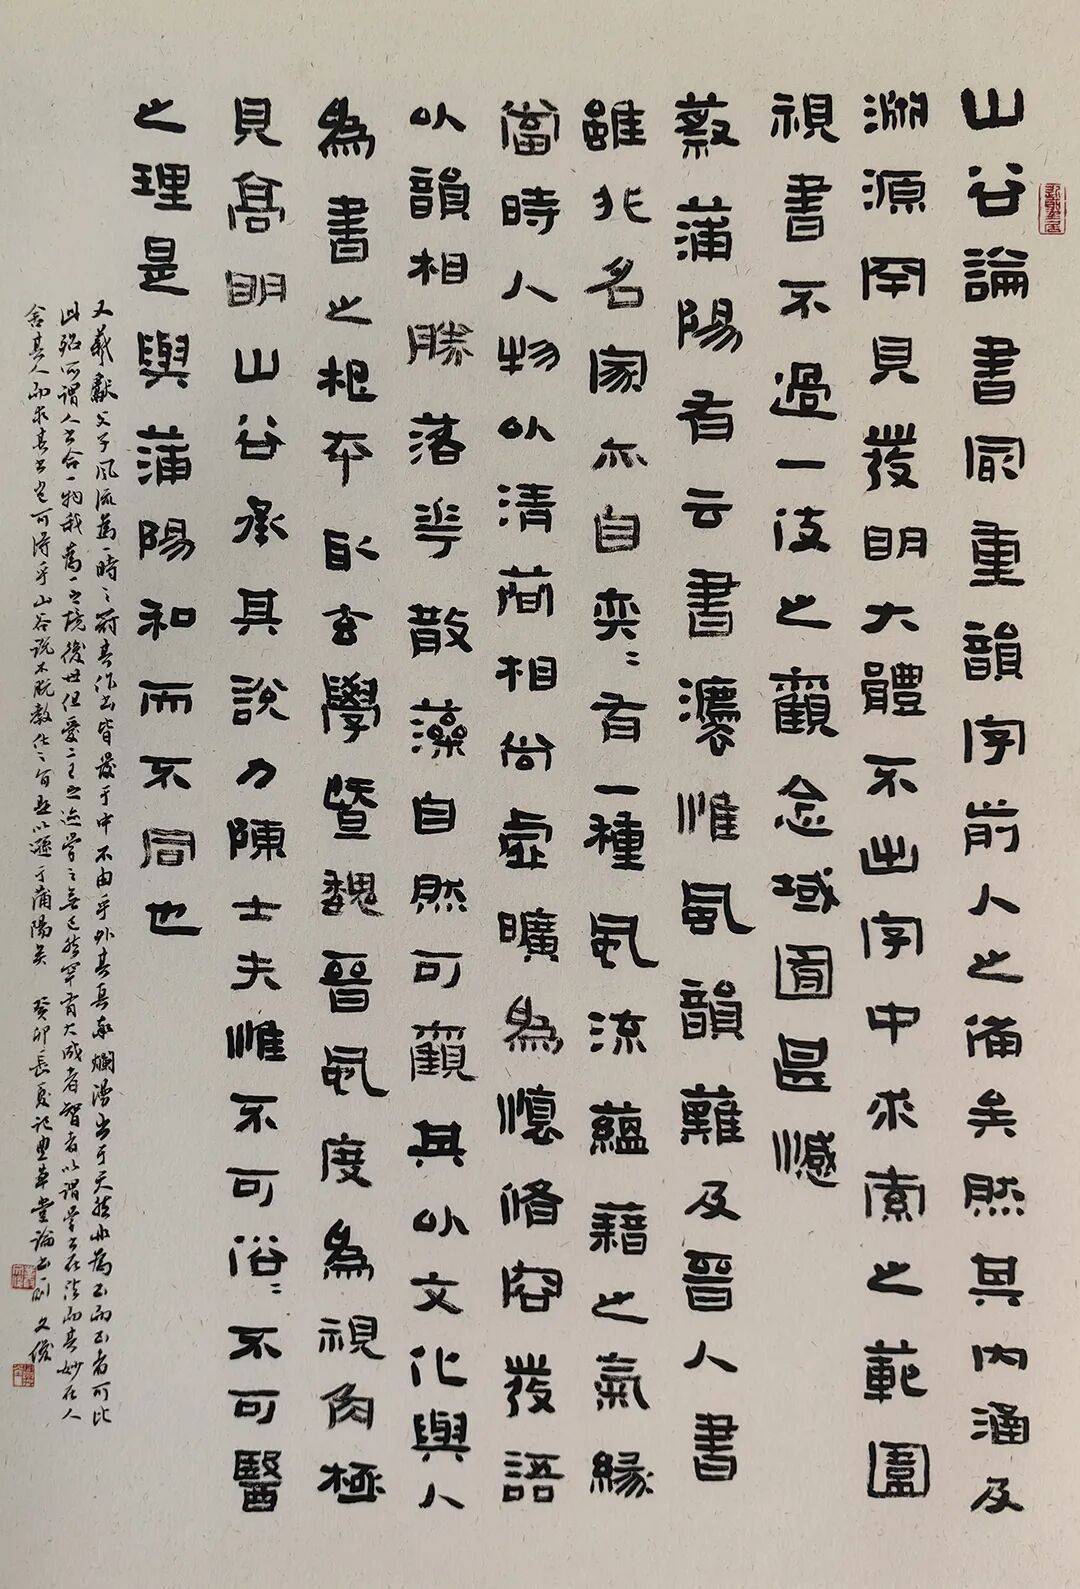 山谷論書最重韻字前人之備矣然其内涵及
溯源罕見發明大體不出字中求索之範圍
視書不過一伎之觀念域囿甚憾
蔡蒲陽有云書灋惟風韻難及晉人書
雖非名家亦自奕〻有一種風流蘊藉之氣緣
當時人物以清簡相尚虛曠為懷脩容發語
以韻相勝落華散藻自然可觀其以文化與人
為書之根本取玄學暨魏晉風度為視角極
見高明山谷承其說力陳士夫惟不可俗〻不可醫
之理是與蒲陽和而不同也
又羲獻父子風流為一時之冠其作書皆發于中不由乎外其真率爛漫出于天然非為書而書者可比
此殆所謂人書合一物我為一之境後世但愛二王之迹學之無已然罕有大成者智者以謂學書在法而其妙在人
舍其人而求其書豈可得乎山谷說不脫教化〻旨是以遜于蒲陽矣 癸卯長夏記墨華堂論書一則 文俊